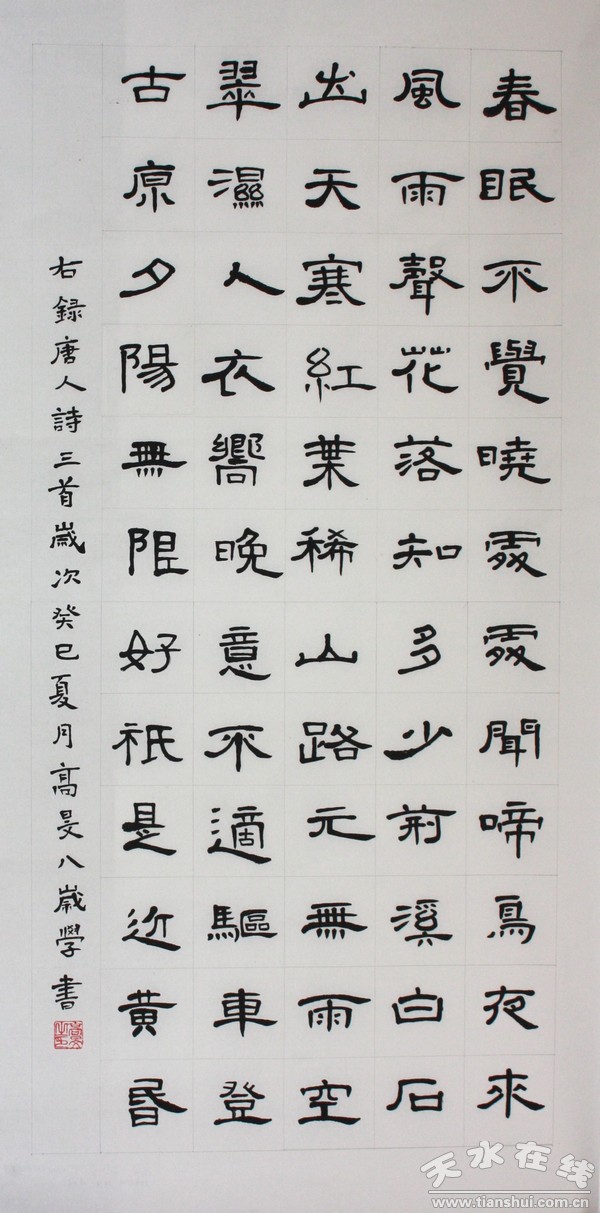 春眠不覺曉處處聞啼鳥夜來
風雨聲花落知多少荊溪白石
出天寒紅葉稀山路元無雨空
翠濕人衣嚮晚意不適驅車登
古原夕陽無限好祇是近黃昏
右録唐人詩三首歲次癸巳夏月高旻八歲學書
天水在线
www.tianshui.com.cn